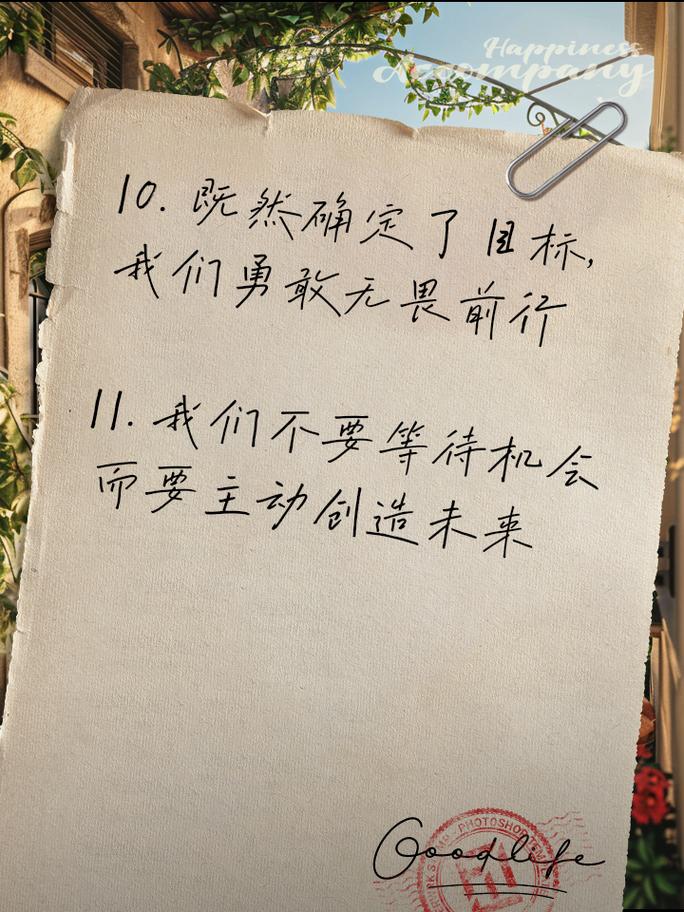 Happiness
Accompany
10. 既然确定了目标,
我们勇敢无畏前行
11. 我们不要等待机会
而要主动创造未来
PHOTOSHOP
Goodlife